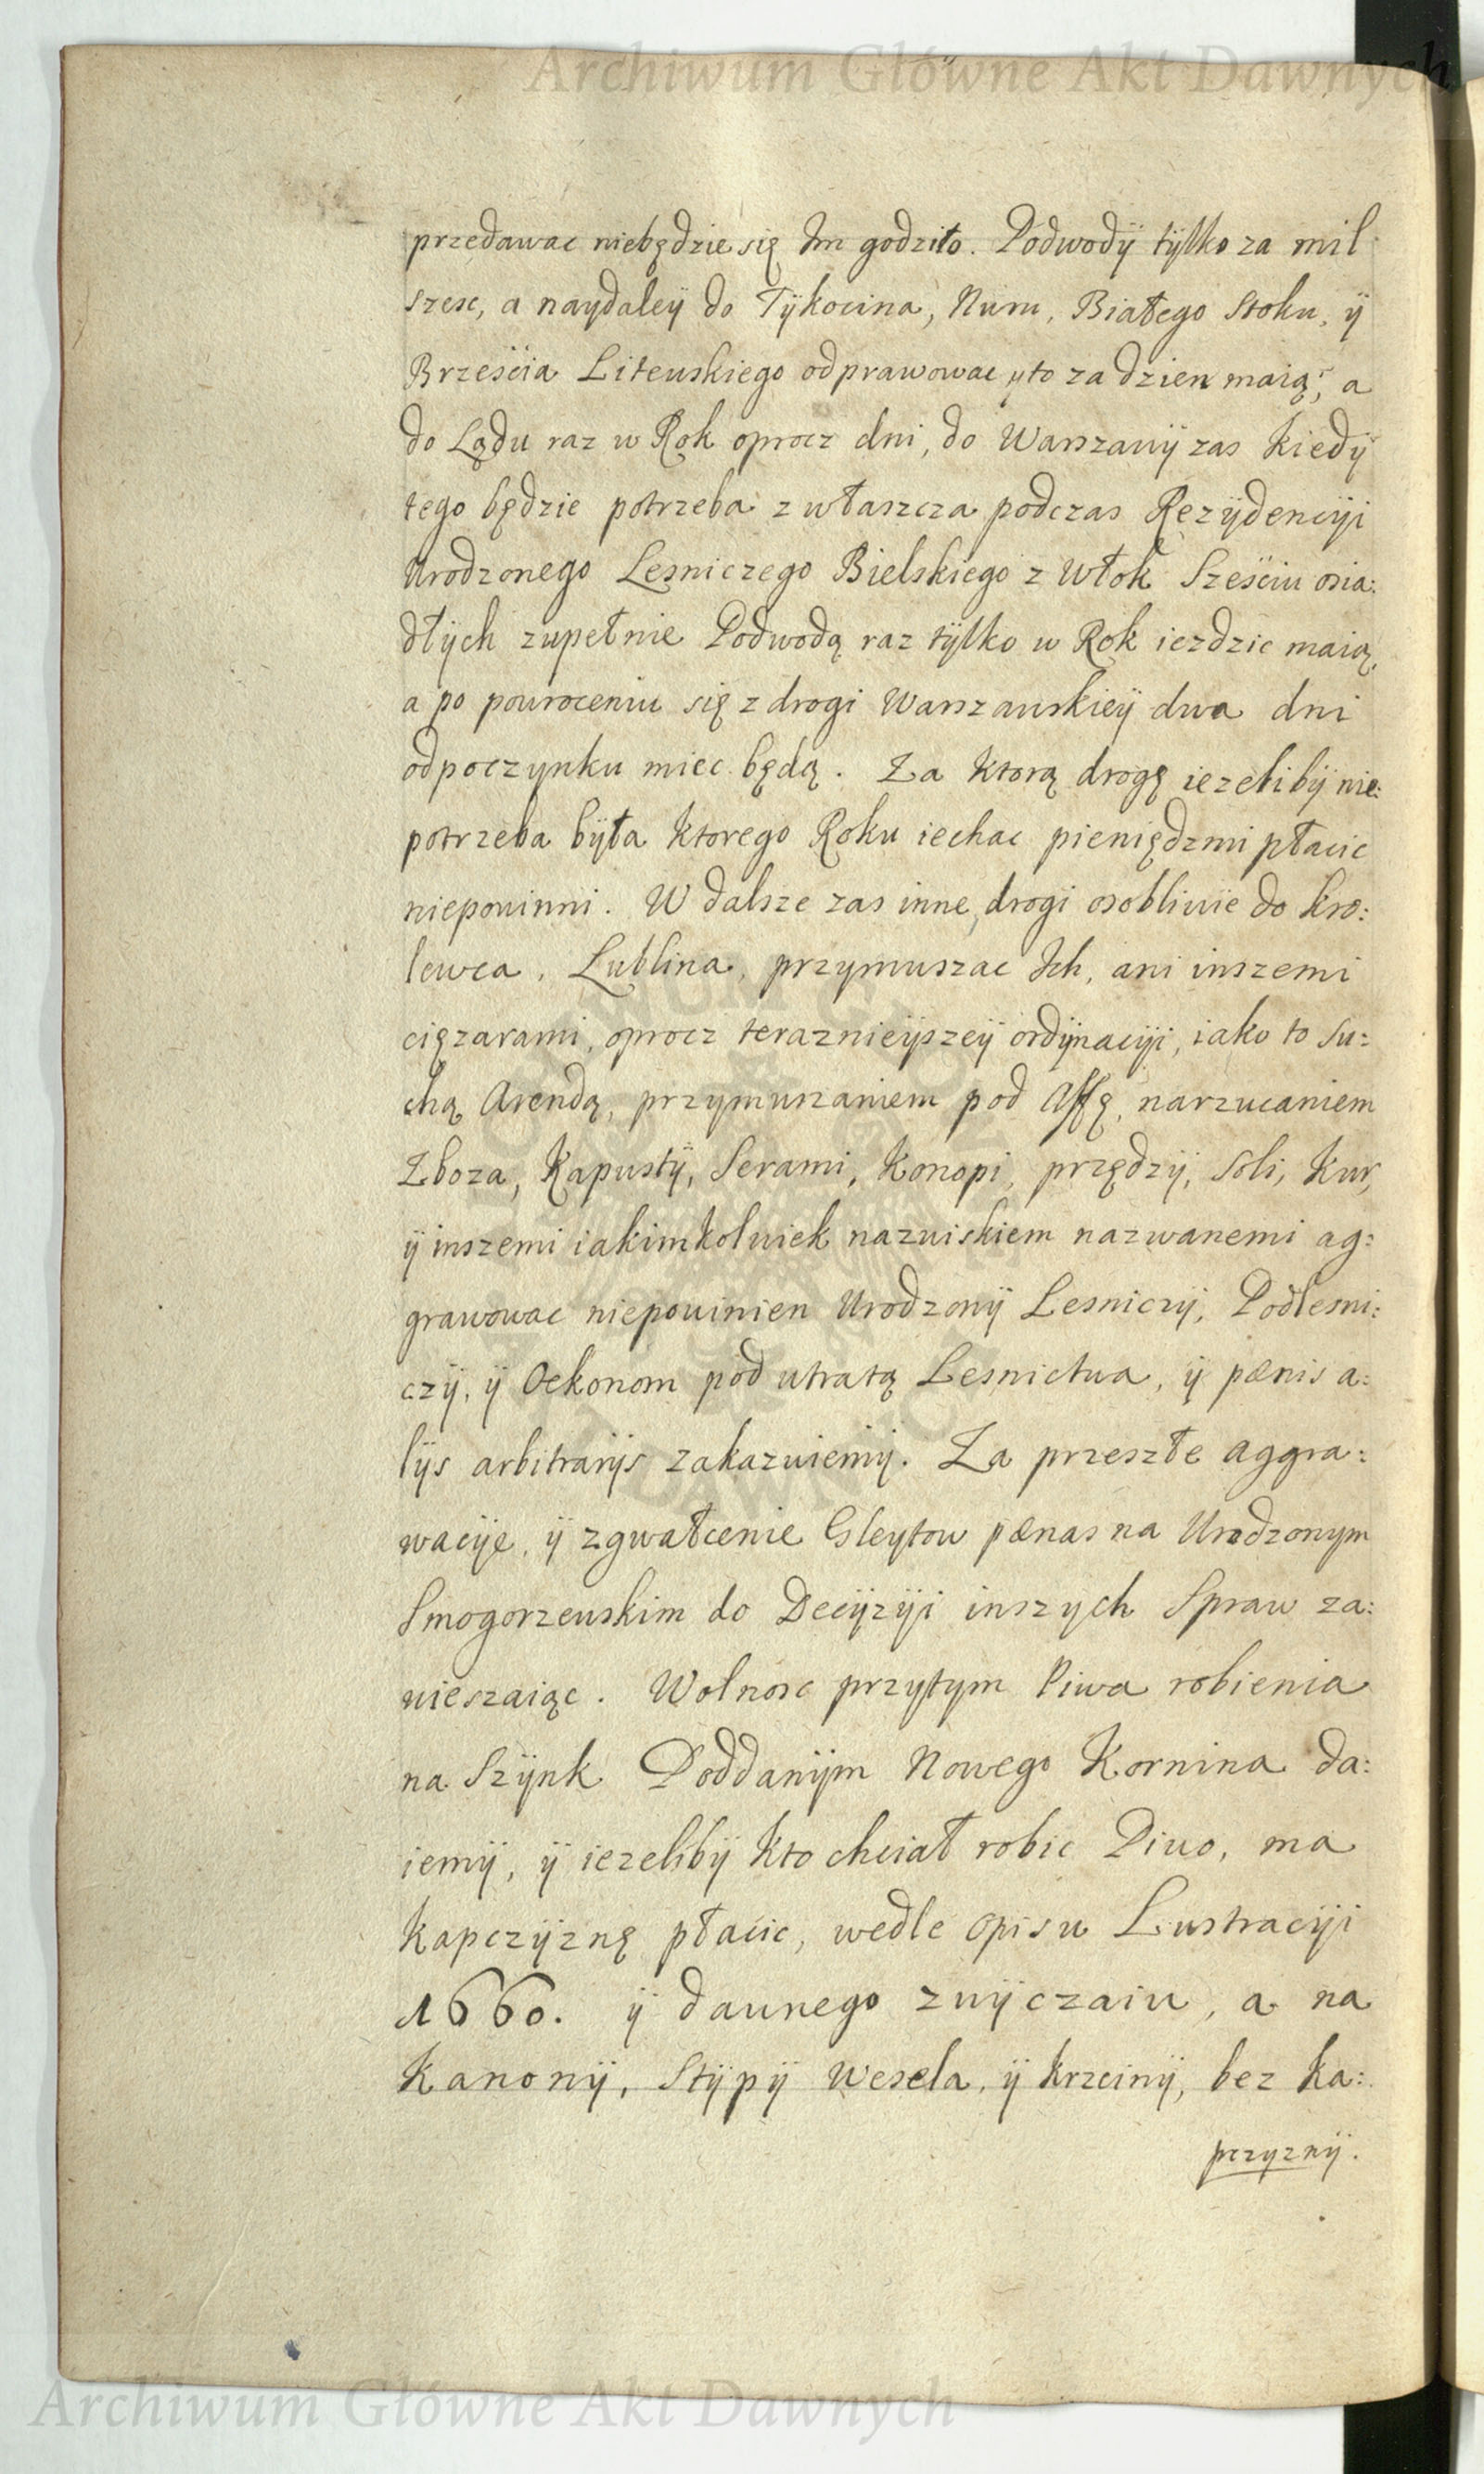 Archiwum Główne Akt Dawnych
przedawac niebędzie się Im godziło. Podwodÿ tÿlko za mil
szesc, a naydaleÿ do Tÿkocina, Nuru, Białego Stoku, ÿ
Brzesċia Liteuskiego odprawowac yto za dzien maią, a
do Lądu raz w Rok oprocz dni, do Warszauÿ zas kiedÿ
tego będzie potrzeba zwłaszcza podczas Rezÿdencÿi
Urodzonego Lesniczego Bielskiego z Włok Szesċiu osia:
dłÿch zupełnie Podwodą raz tÿlko w Rok iezdzic maią,
a po pouroceniu się z drogi Warszauskieÿ dwa dni
odpoczynku miec będą. Za ktorą drogę iezelibÿ nie:
potrzeba bÿła ktorego Roku iechac pieniędzmi płacic
niepouinni. W dalsze zas inne drogi osobliuie do kro:
lewca, Lublina, przymuszac Ich, ani inszemi
cięzarami, oprocz teraznieÿszeÿ ordÿnacÿi, iako to su:
chą Arendą, przymuszaniem pod Assę, narzucaniem
Zboza, Kapustÿ, Serami, Konopi, przędzÿ, Soli, Kur,
ÿ inszemi iakimkoluiek nazuiskiem nazwanemi ag:
grawowac niepouinien Urodzonÿ Lesniczÿ, Podlesni:
czÿ, ÿ Oekonom pod utratą Lesnictua, ÿ pœnis a:
lÿs arbitrarÿs zakazuiemÿ. Za przeszłe aggra:
wacÿe, ÿ zgwałcenie Gleytou pœnas na Urodzonym
Smogorzeuskim do Decÿzÿi inszych Spraw za:
uieszaiąc. Wolnosc przytym Piwa robienia
na Szÿnk Poddanÿm Nowego Kornina da:
iemÿ, ÿ iezelibÿ kto chciał robic Piuo, ma
kapczÿznę płacic, wedle opisu Lustracÿi
1660. ÿ daunego zuÿczaiu, a na
Kanonÿ, Stÿpÿ Wesela, ÿ krzcinÿ, bez ka:
pczyznÿ.
Archiwum Główne Akt Dawnych